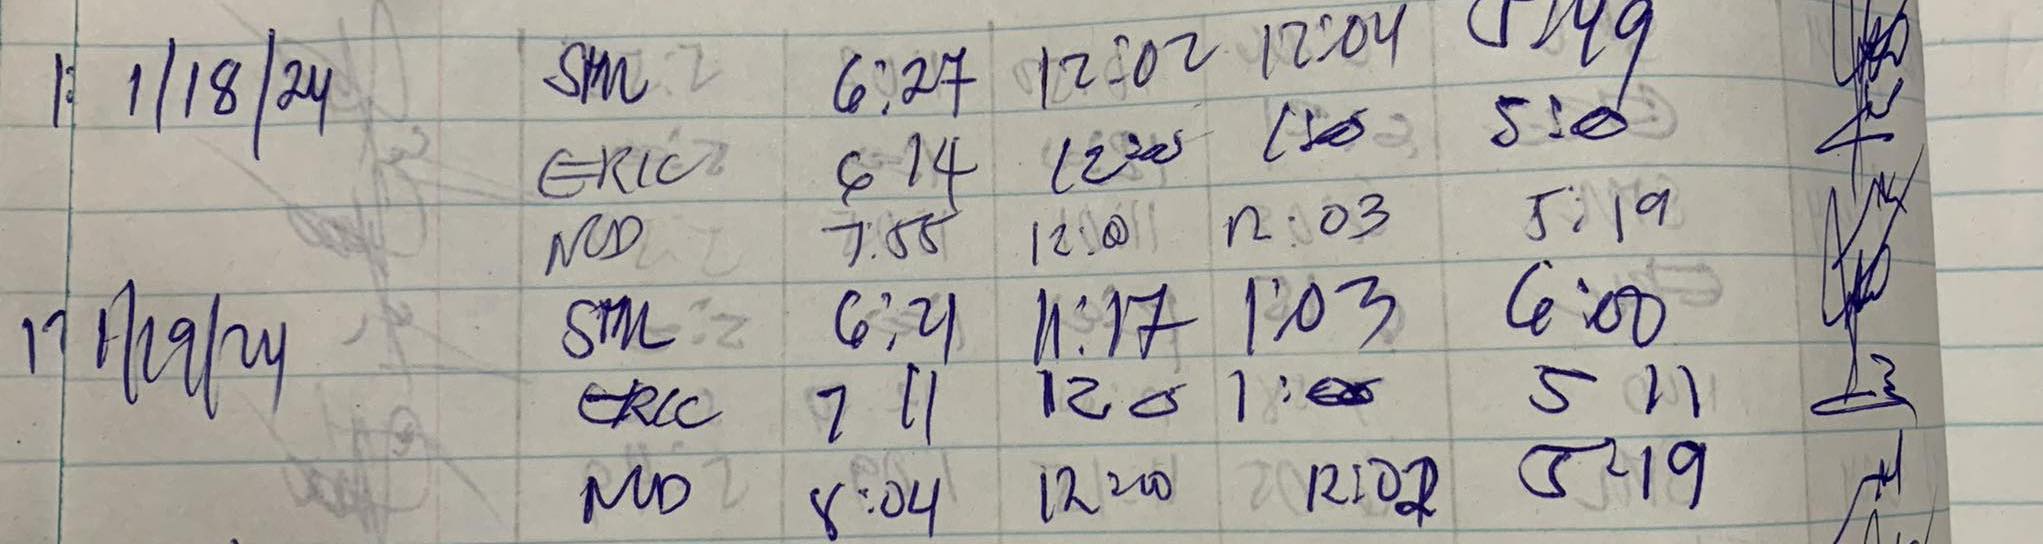 1/18/24 SML 6:27 12:02 12:04 5:49
ERIC 6 14 12:00 1:00 5:00
NUD 7:55 12:00 12:03 5:19
1/19/24 SML 6:21 11:17 1:03 6:00
ERIC 7 11 12 0 1:00 5 11
NUD 8:04 12:00 12:02 5:19